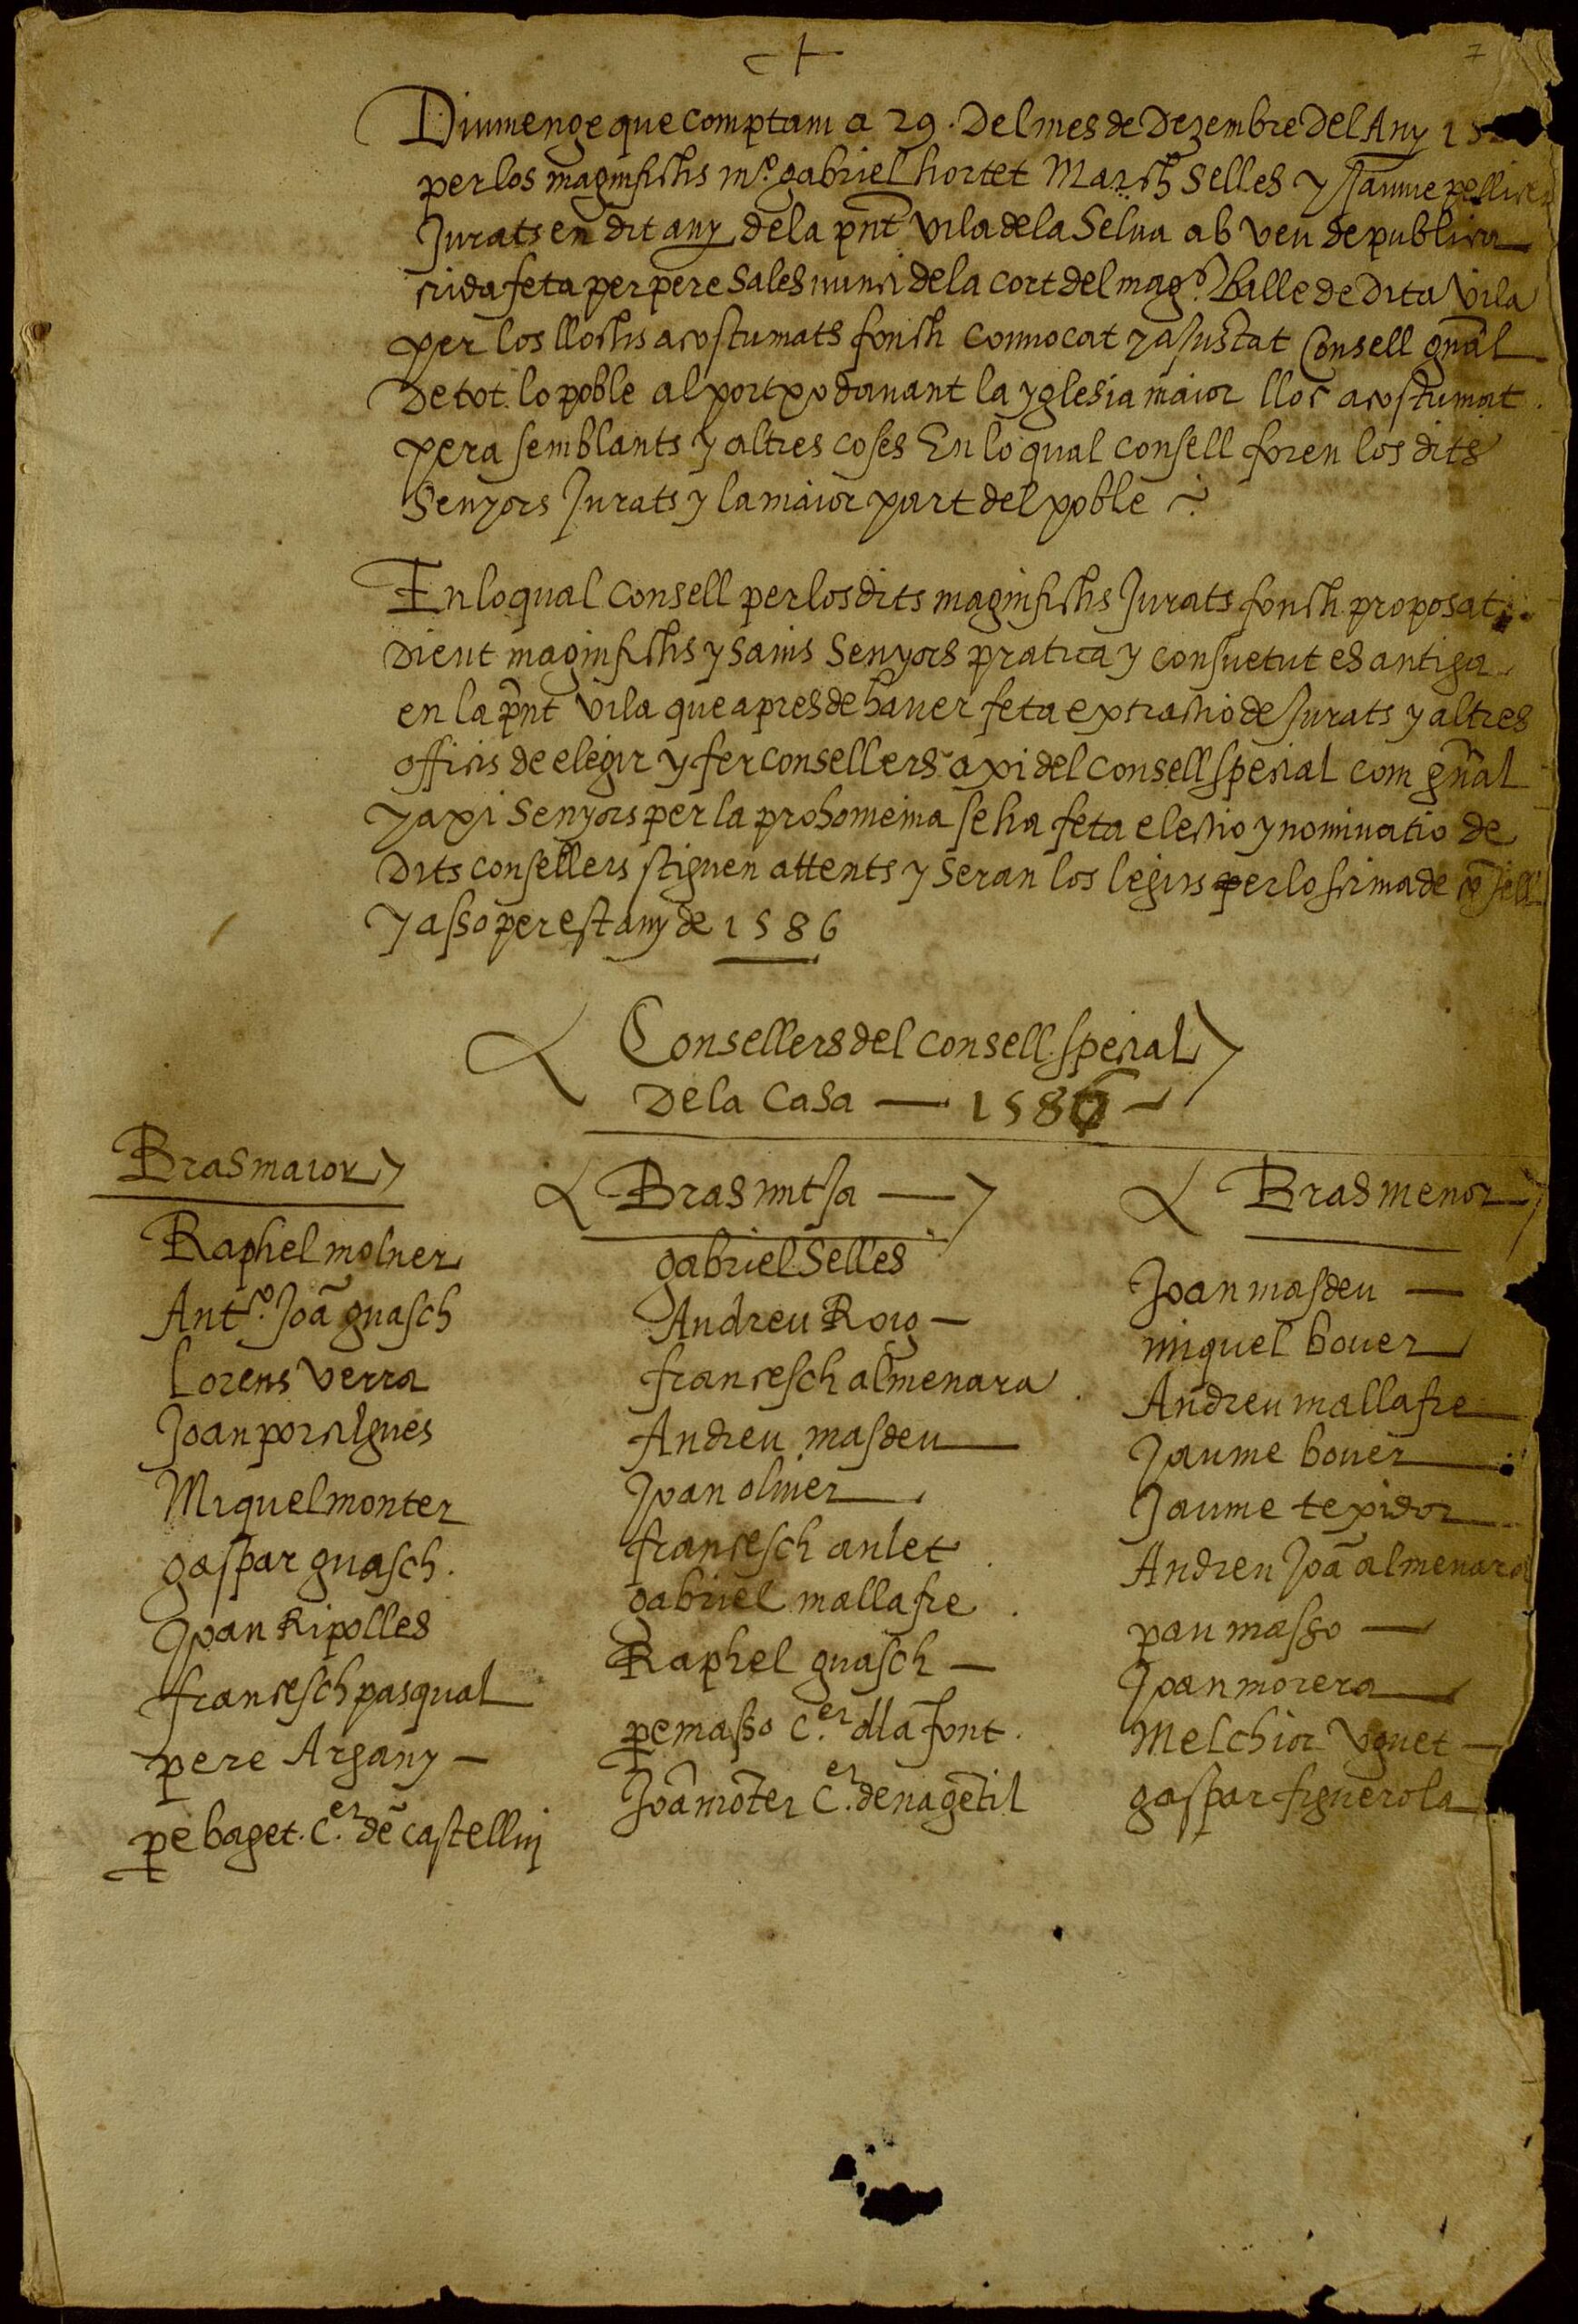 7
Diumenge que comptam a 29. del mes de Dezembre del Any 15
per los magnifichs mº. gabriel hortet March selles y Jaume pellicer
Jurats en dit any de la pñt vila de la Selua ab veu de publica
crida feta per pere sales nunci de la cort del magº. Balle de dita vila
per los llochs acostumats fonch conuocat y aJustat Consell gñal
de tot lo poble al portxo dauant la yglesia maior lloc acostumat
pera semblants y altres coses En lo qual consell foren los dits
Senyors Jurats y la maior part del poble
En lo qual consell per los dits magnifichs Jurats fonch proposat
dient magnifichs y sauis Senyors pratica y consuetut es antiga
en la pñt vila que apres de hauer feta extractio de Jurats y altres
officis de elegir y fer consellers axi del consell special com gñal
y axi Senyors per la prohomenia se ha feta electio y nominatio de
dits consellers stiguen attents y seran los legits per lo scriua de cõsell
y asso per est any de 1586
Consellers del consell special
de la casa — 1586 —
Bras maior
Raphel molner
Antº. Joã guasch
Lorens verra
Joan porcilgues
Miquel monter
gaspar guasch.
Joan Ripolles
francesch pasqual
pere Argany —
pe baget. c.er de castellui
Bras mitsa —
gabriel Selles
Andreu Roig —
francesch almenara
Andreu masdeu
Joan oliuer
francesch anlet
gabriel mallafre
Raphel guasch —
pe masso c.er dla font.
Joã mõter c.er de na gẽtil
Bras menor
Joan masdeu —
miquel bouer
Andreu mallafre
Jaume bouer
Jaume texidor
Andreu Joã almenara
pau masso —
Joan morera
Melchior Uguet —
gaspar figuerola